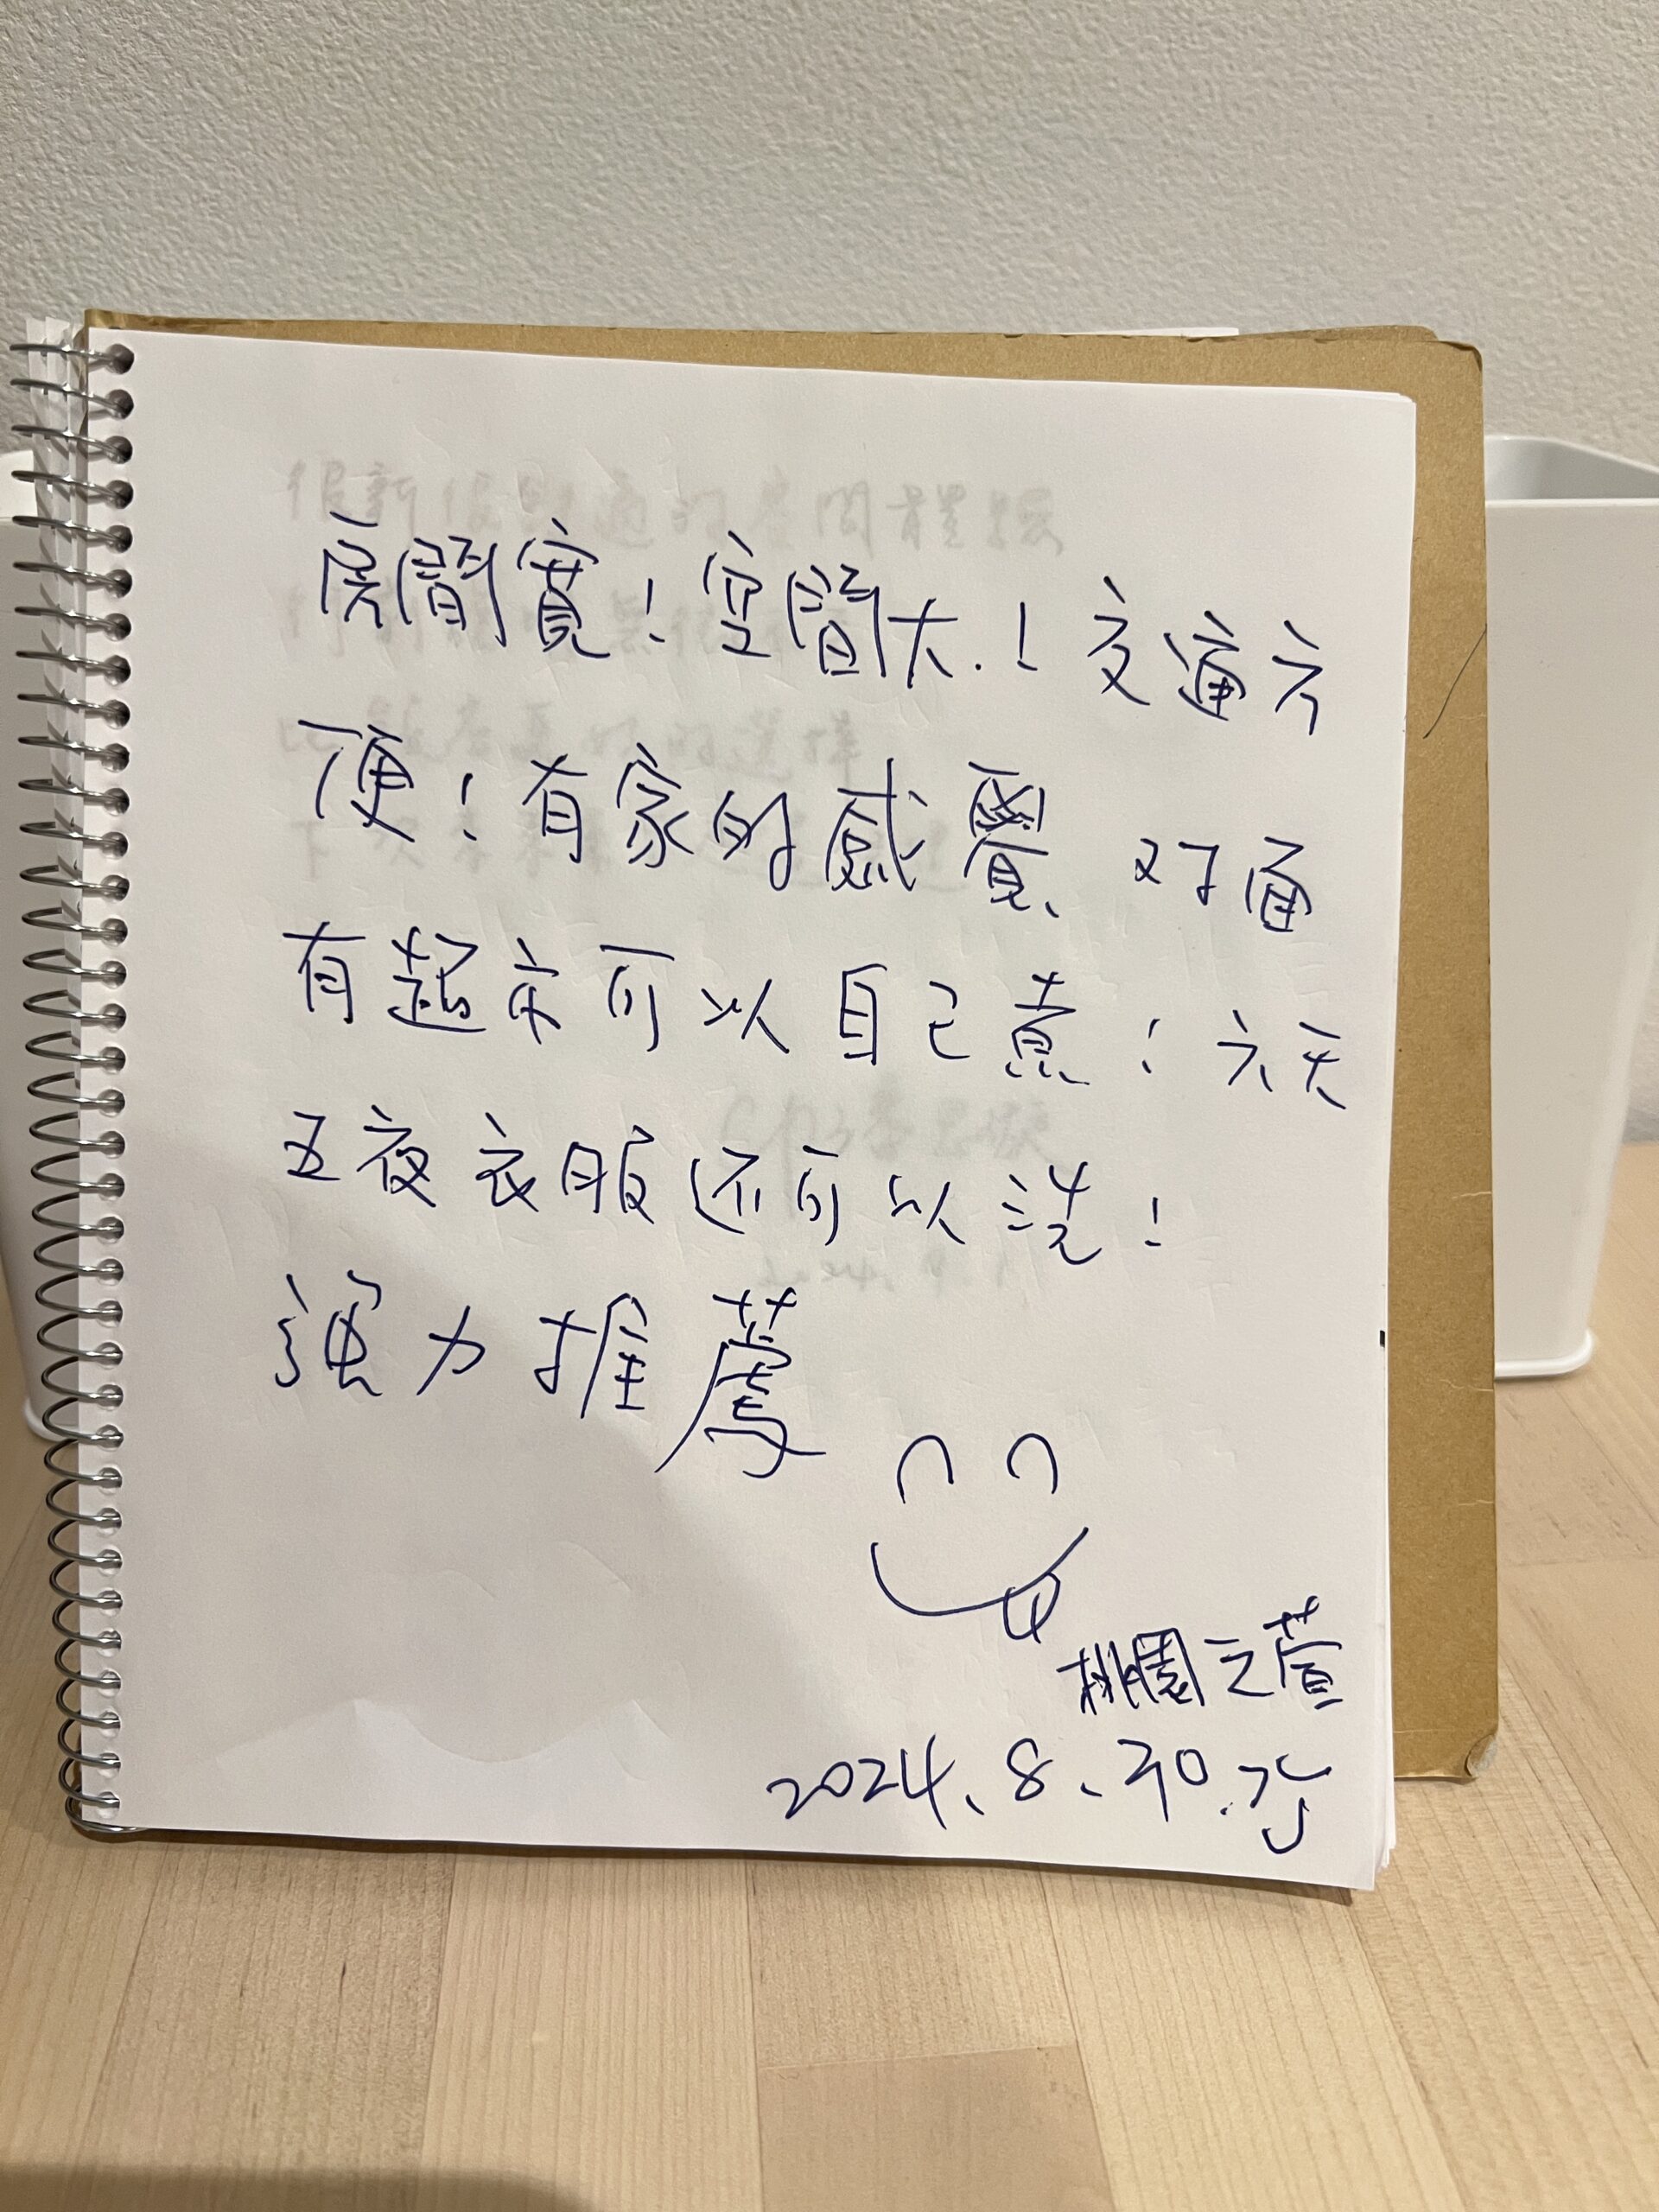 房間寬！空間大.！交通方
便！有家的感覺、对面
有超市可以自己煮！六天
五夜衣服还可以洗！
強力推薦
桃園之萱
2024.8.30.